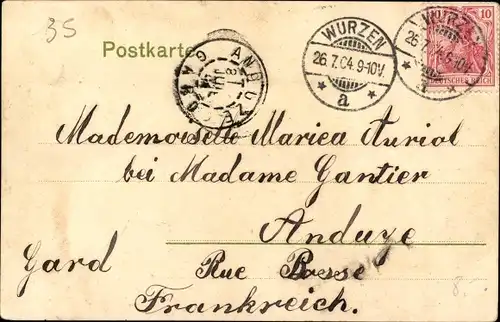 35
Postkarte
WURZEN
26.7.04.9-10V.
a
WURZ
26.7.04.9-10V.
a
10
DEUTSCHES REICH
ANDUZE
GARD
Mademoiselle Mariea Auriol
bei Madame Gantier
Anduze
Gard Rue Basse
Frankreich.
8,-